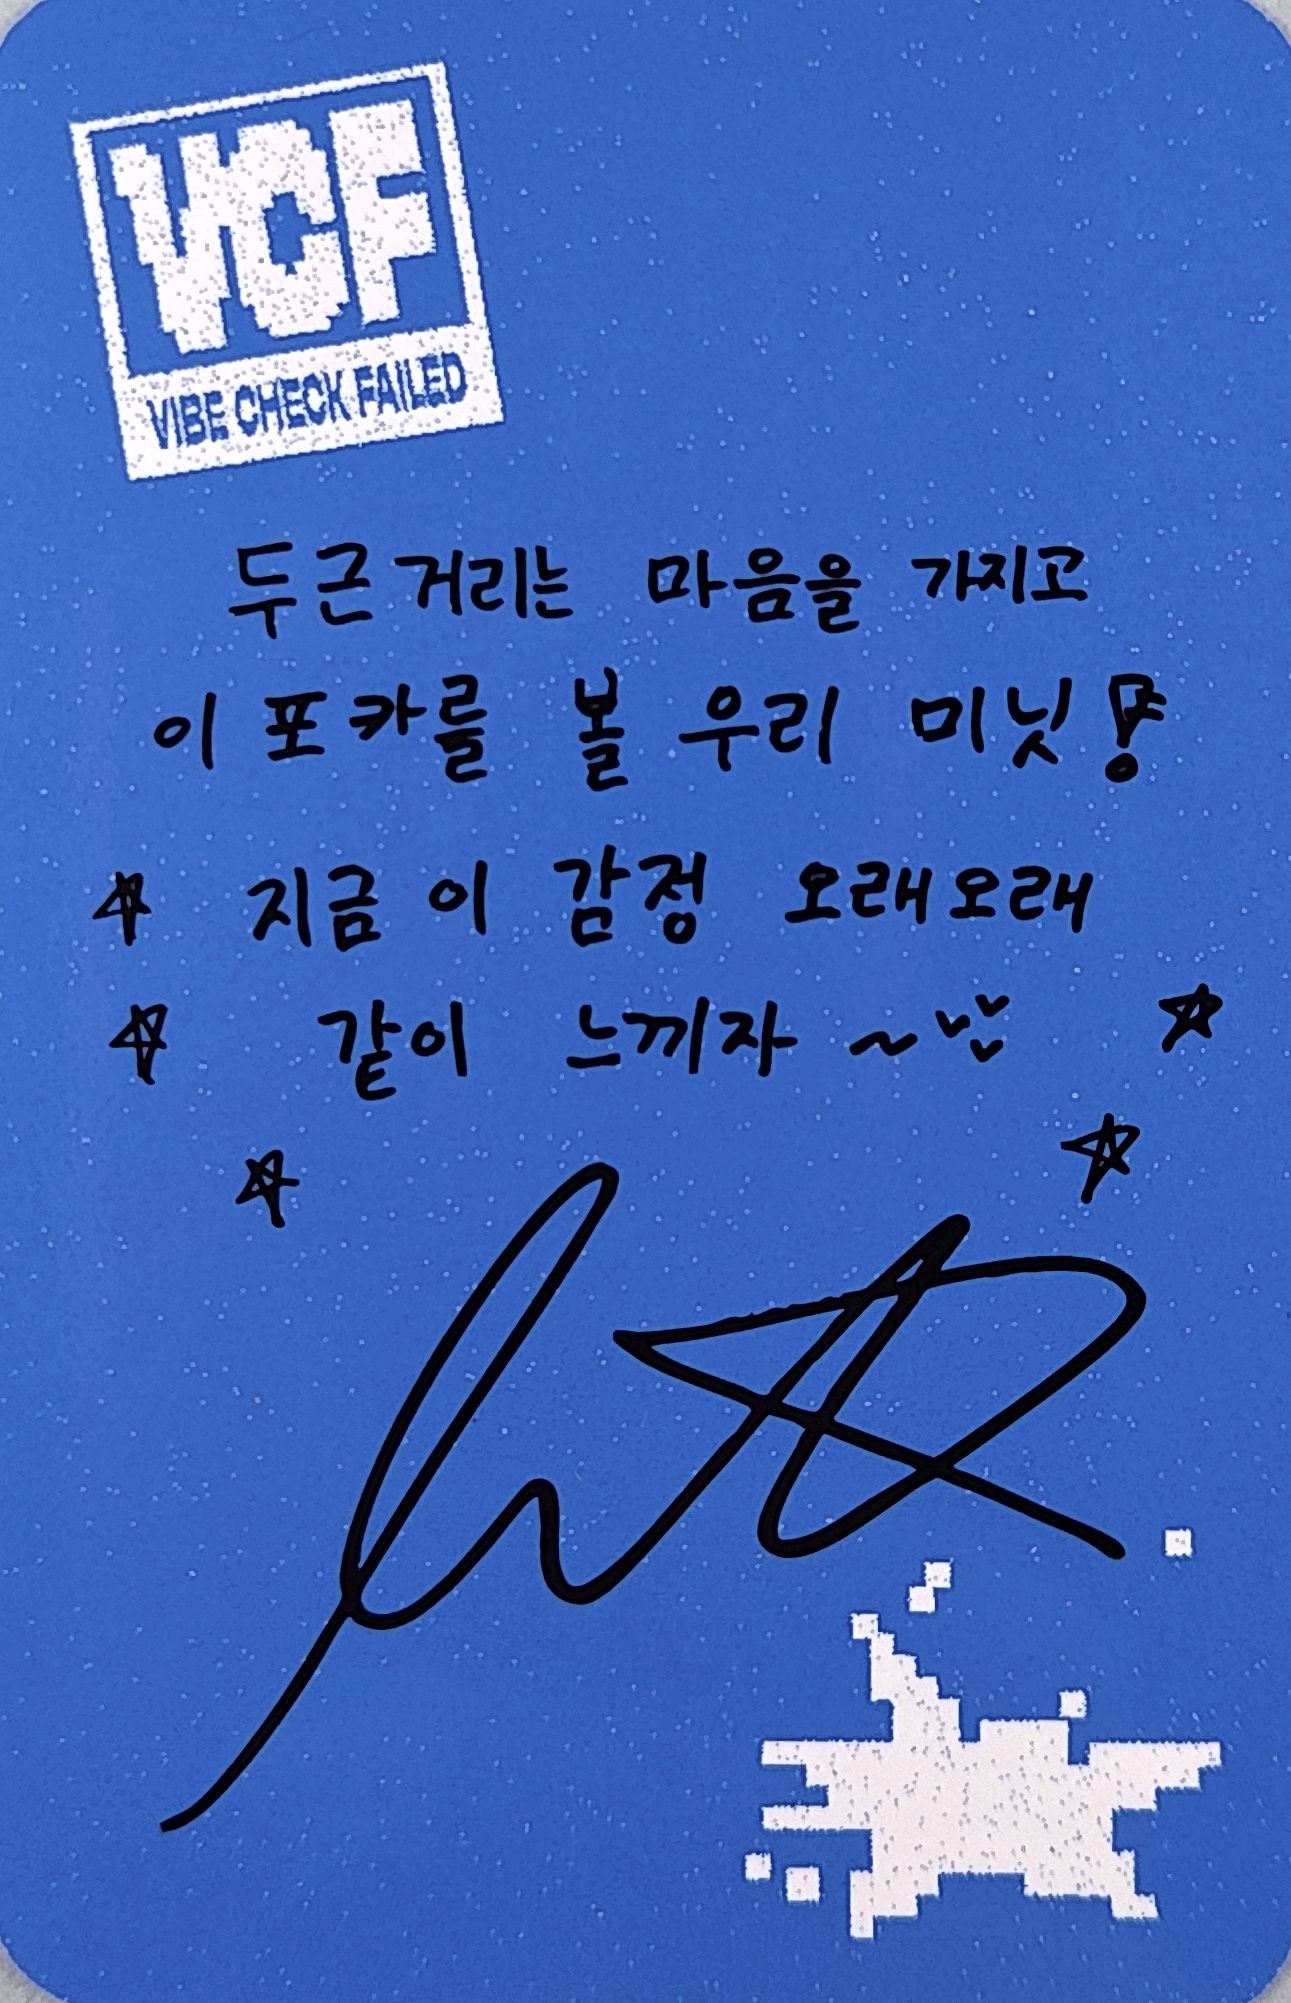 VCF
VIBE CHECK FAILED
두근거리는 마음을 가지고
이 포카를 볼 우리 미닛!
지금 이 감정 오래오래
같이 느끼자 ~